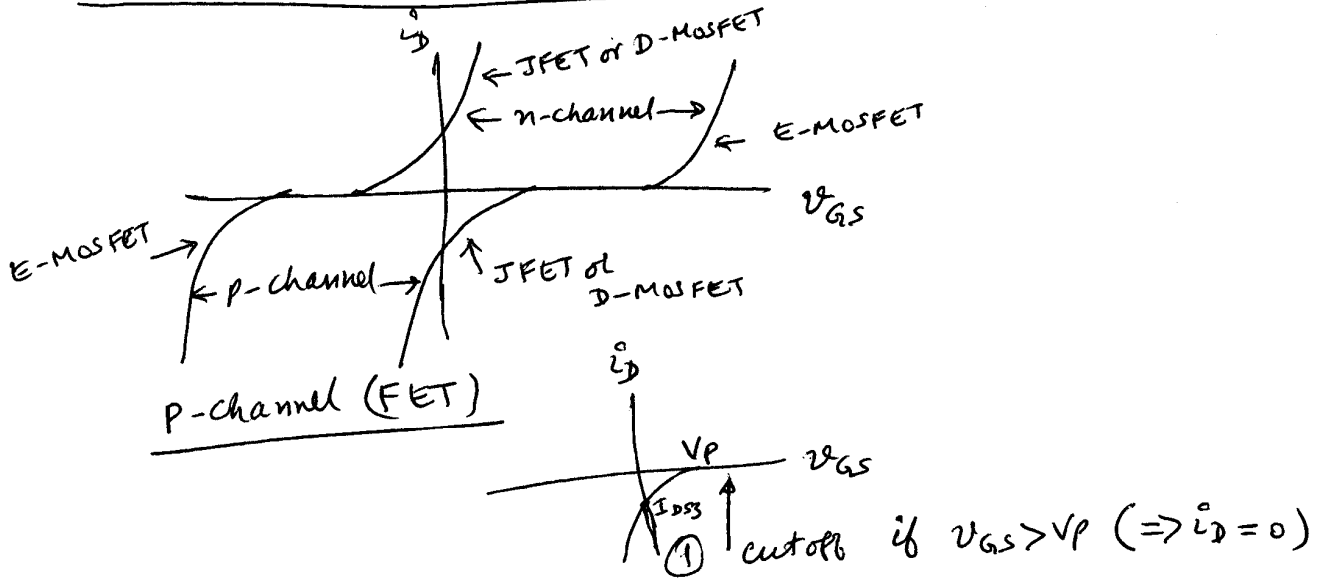 i_D
← JFET or D-MOSFET
← n-channel →
← E-MOSFET
v_GS
E-MOSFET →
← p-channel →
↑ JFET or
D-MOSFET
P-channel (FET)
i_D
V_P
v_GS
I_DSS
① cutoff if v_GS > V_P (=> i_D = 0)